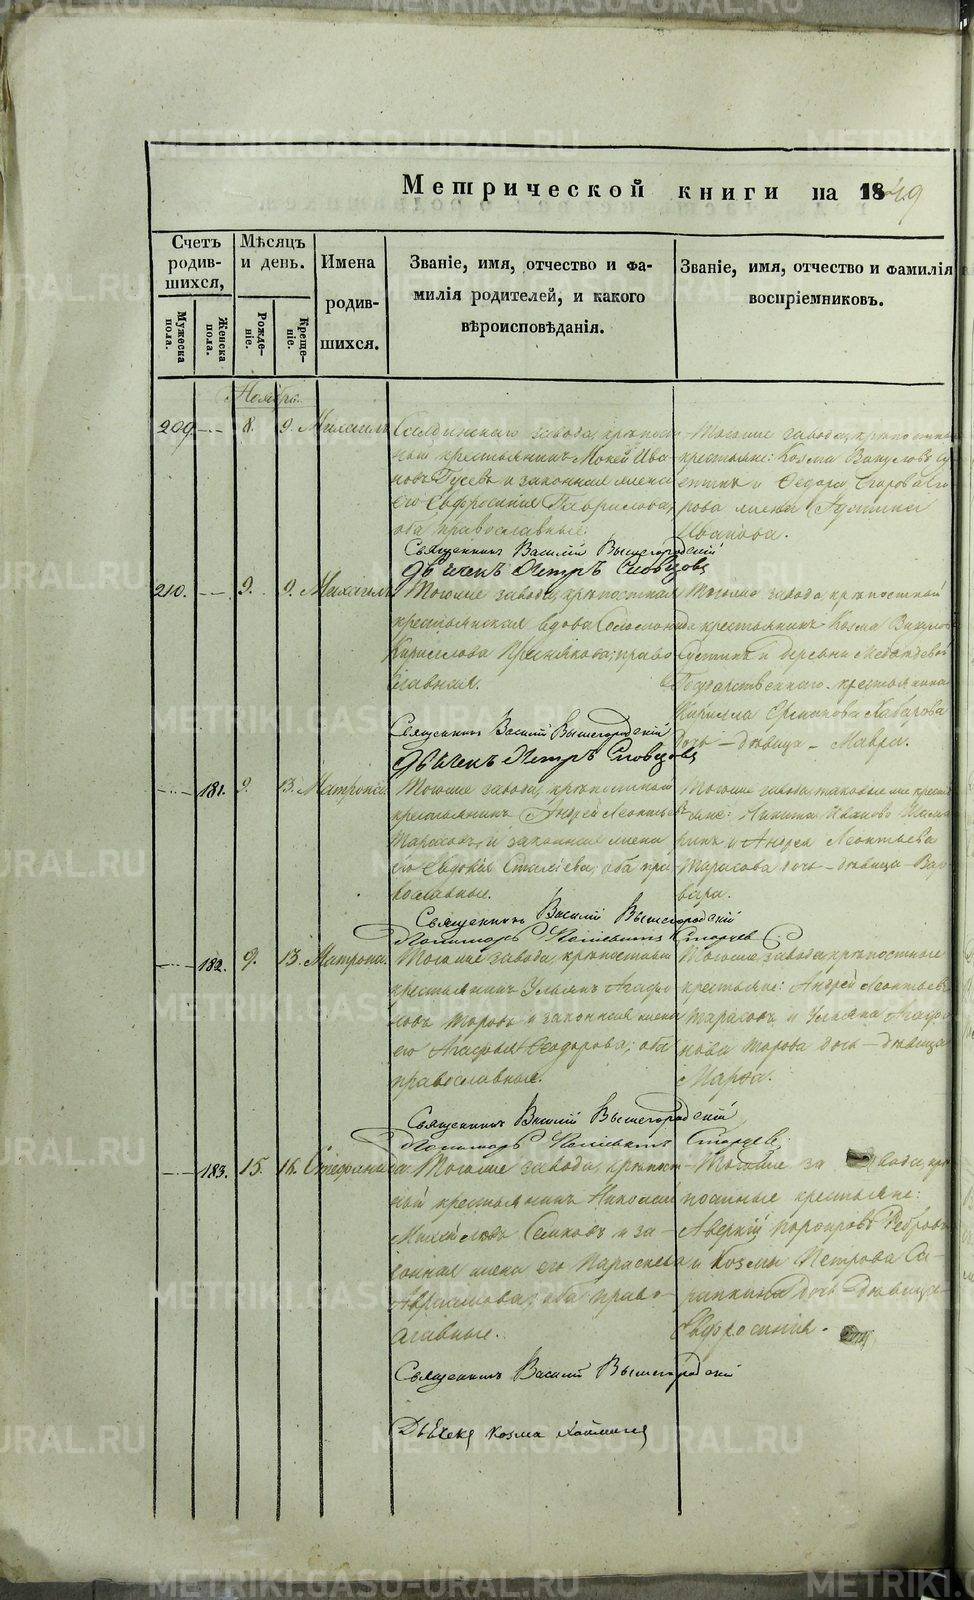 Метрической книги на 1849
Счетъ родив-шихся,
Мужеска пола.
Женска пола.
Мѣсяцъ и день.
Рожде-ніе.
Креще-ніе.
Имена родив-шихся.
Званіе, имя, отчество и фа-
милія родителей, и какого
вѣроисповѣданія.
Званіе, имя, отчество и фамилія
воспріемниковъ.
Ноябрь.
209. 8. 9. Михаилъ
Салдинскаго завода, крѣпост-
ный крестьянинъ Мокей Ива-
новъ Гусевъ и законная жена
его Евфросинія Гаврилова,
оба православные.
Тогоже завода, крѣпостные
крестьяне: Козма Вакуловъ
и Федора Егорова
жена
Иванова.
Священникъ Василій Вышегородскій
Дьячекъ Петръ Словцовъ
210. 9. 9. Михаилъ
Тогоже завода, крѣпостная
крестьянская вдова Соломонида
Кириллова право-
славная.
Тогоже завода, крѣпостный
крестьянинъ Козма Вакулов
и деревни Медведевой
Государственнаго крестьянина
Кирилла Хабарова
дочь - дѣвица - Мавра.
Священникъ Василій Вышегородскій
Дьячекъ Петръ Словцовъ
181. 9. 13. Матрона.
Тогоже завода, крѣпостный
крестьянинъ Андрей Леонтьевъ
Тарасовъ, и законная жена
его Евдокія оба пра-
вославные.
Тогоже завода таковые же кресть-
яне: Никита Иванов
и Андрея Леонтьева
Тарасова дочь - дѣвица Вар-
вара.
Священникъ Василій Вышегородскій
Пономарь Старцев
182. 9. 13. Матрона.
Тогоже завода, крѣпостный
крестьянинъ Ульянъ Агафо-
новъ Торовъ и законная жена
его Агафья Феодорова; оба
православные.
Тогоже завода крѣпостные
крестьяне: Андрей Леонтьевъ
Тарасовъ и Ульяна Агафо-
нова Торова дочь - дѣвица
Марфа.
Священникъ Василій Вышегородскій
Пономарь Старцев
183. 15. 16. Стефанида.
Тогоже завода, крѣпост-
ной крестьянинъ Николай
Михайловъ и за-
конная жена его Параскева
Авраамова, оба право-
славные.
Тогоже за вода, крѣ-
постные крестьяне:
Аверкій
и Козмы Петрова
дочь - дѣвица
Евфросинія.
Священникъ Василій Вышегородскій
Дьячекъ Козма
METRIKI.GASO-URAL.RU